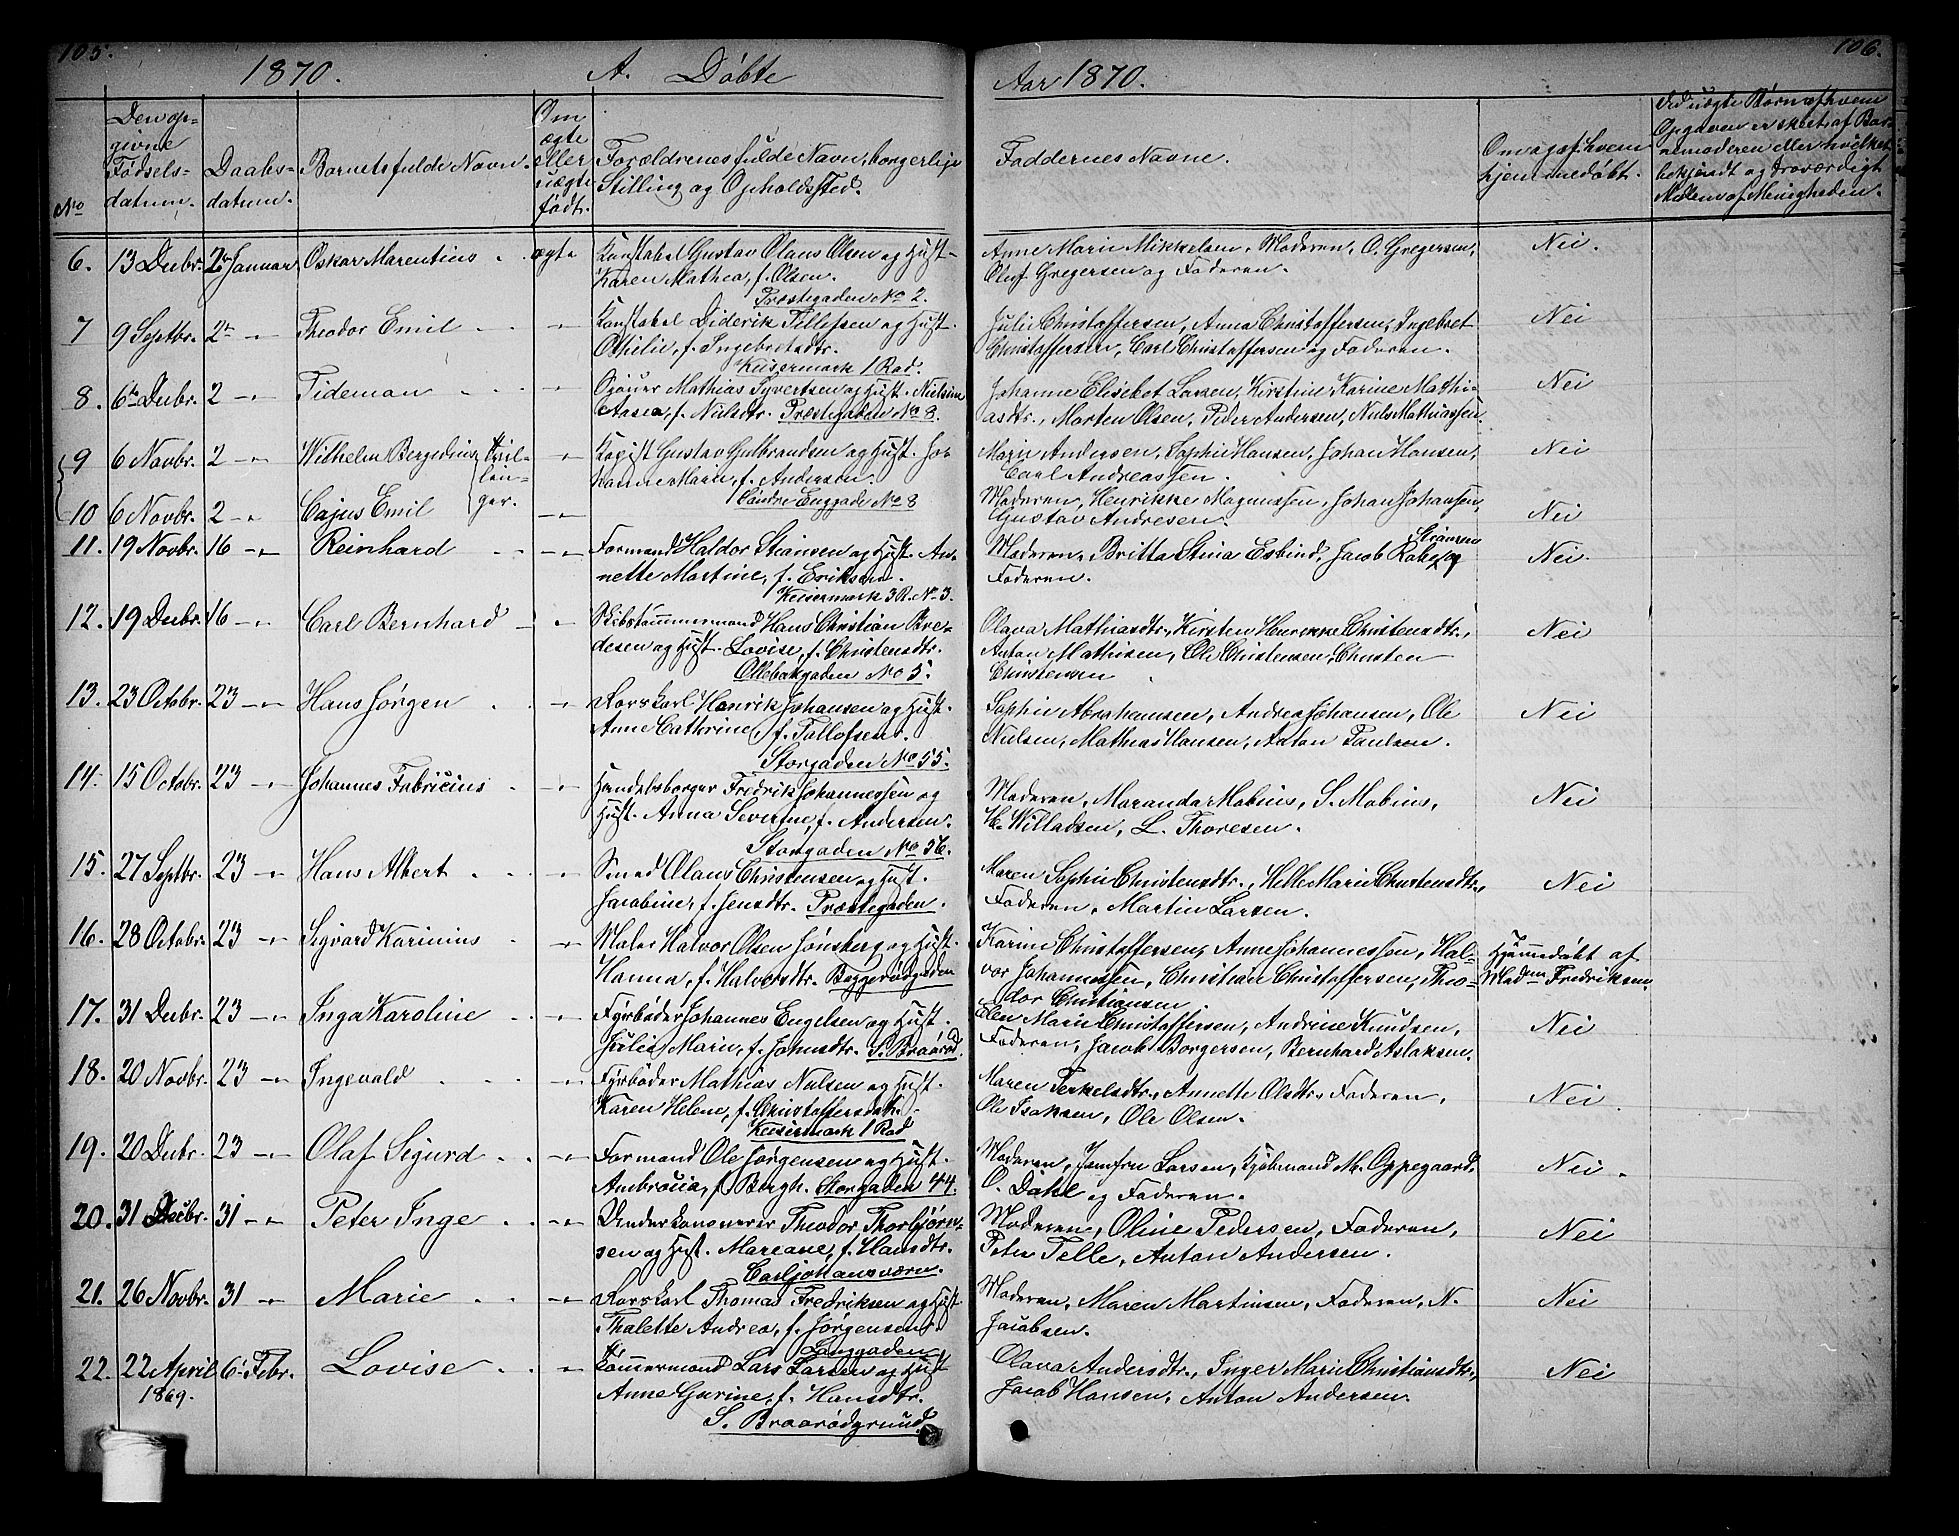 105.
1870. A. Døbte
No
Den op-
givne
Fødsels-
datum.
Daabs-
datum.
Barnets fulde Navn.
Om
ægte
eller
uægte
født.
Forældrenes fulde Navn, borgerlige
Stilling og Opholdssted.
6. 13 Decbr. 2 Januar Oskar Marentius ægte Konstabel Gustav Olaus Olsen og Hust.
Karen Mathea, f. Olsen.
Præstegaden No 2.
7 9 Septbr. 2 Theodor Emil Konstabel Diderik Tellefsen og Hust.
Othilie, f. Ingebretsdtr.
Keisermark 1 Rad.
8. 6 Decbr. 2 Tideman Mathias Syvertsen og Hust. Nielsine
Aasea, f. Nielsdtr. Præstegaden No 8.
9 6 Novbr. 2 Wilhelm Bergedius Tvil-
lin-
ger.
Kopist Gustav Gulbrandsen og Hust. Jo-
hanne Marie, f. Andersen.
Enggade No 8
10 6 Novbr. 2 Cajus Emil
11. 19 Novbr. 16 Reinhard Formand Haldor Strømsen og Hust. An-
nette Martine, f. Eriksen.
Keisermark 3 R. No 3.
12. 19 Decbr. 16 Carl Bernhard Skibstømmermand Hans Christian Bre-
desen og Hust. Lovise, f. Christensdtr.
Ollebakgaden No 5.
13. 23 Octobr. 23 Hans Jørgen Rorskarl Henrik Johansen og Hust.
Anne Cathrine, f. Tallofsen.
Storgaden No 55.
14. 15 Octobr. 23 Johannes Fabricius Handelsborger Fredrik Johannessen og
Hust. Anna Severine, f. Andersen.
Storgaden No 56.
15. 27 Septbr. 23 Hans Albert Smed Olaus Christensen og Hust.
Jacobine, f. Jensdtr. Præstegaden.
16. 28 Octobr. 23 Sigvard Karinius Maler Halvor Olsen Jønsberg og Hust.
Hanna, f. Halvorsdtr. Baggerødgaden
17. 31 Decbr. 23 Inga Karoline Fyrbøder Johannes Engelsen og Hust.
Julie Marie, f. Johnsdtr. S. Braarød.
18. 20 Novbr. 23 Ingevald Fyrbøder Mathias Nielsen og Hust.
Karen Helene, f. Christoffersdatr.
Keisermark 1 Rad
19. 20 Decbr. 23 Olaf Sigurd Formand Ole Jørgensen og Hust.
Ambrosia, f. Bergh. Storgaden 44.
20. 31 Decbr. 31 Peter Inge Underkanoneer Theodor Thorbjørn-
sen og Hust. Mareane, f. Hansdtr.
Carljohansværn.
21. 26 Novbr. 31 Marie Rorskarl Thomas Fredriksen og Hust
Thalette Andrea, f. Jørgensen.
Langgaden
22. 22 April 6. Febr. Lovise Tømmermand Lars Larsen og Hust
1869.
Anne Gurine, f. Hansdtr.
S. Braarødgrund.
106.
Aar 1870.
Faddernes Navne.
Om og af hvem
hjemmedøbt.
Ved uægte Børn af hvem
Opgaven er skeet, af Bar-
nemoderen eller hvilket
bekjendt og troværdigt
Medlem af Menigheden.
Anne Marie Mikkelsen, Moderen, O. Gregersen, Nei.
Oluf Gregersen og Faderen.
Julie Christoffersen, Anna Christoffersen, Ingebret Nei
Christoffersen, Carl Christoffersen og Faderen.
Johanne Elisebet Larsen, Kirstine Karine Mathi- Nei
asdtr., Morten Olsen, Peder Andersen, Niels Mathiassen.
Marie Andersen, Sophie Hansen, Johan Hansen, Nei
Carl Andreassen.
Moderen, Henrikke Magnussen, Johan Johansen, Nei
Gustav Andresen.
Strømsen
Moderen, Britta Stina Esbind, Jacob Rabe, og Nei.
Faderen.
Olava Mathiasdtr., Kirsten Henrikke Christensdtr., Nei
Anton Mathisen, Ole Christensen, Christen
Christensen
Sophie Abrahamsen, Andrea Johansen, Ole Nei
Nielsen, Mathias Hansen, Anton Paulsen.
Moderen, Maranda Mobius, S. Mobius, Nei
H. Willadsen, L. Thoresen.
Maren Sophie Christensdtr., Helle Marie Christensdtr., Nei
Faderen, Martin Larsen.
Karine Christoffersen, Anne Johannessen, Hal- Hjemmedøbt af
vor Johannessen, Christian Christoffersen, Theo- Madm Fredriksen.
dor Christiansen.
Elen Marie Christoffersen, Andrine Knudsen, Nei
Faderen, Jacob Borgersen, Bernhard Aslaksen.
Maren Terkelsdtr., Annette Olsdtr. Faderen, Nei
Ole Isaksen, Ole Olsen.
Moderen, Jomfru Larsen, Kjøbmand M. Oppegaard, Nei
O. Dahl og Faderen.
Moderen, Oline Pedersen, Faderen, Nei
Peter Telle, Anton Andersen.
Moderen, Maren Martinsen, Faderen, N. Nei
Jacobsen.
Olava Andersdtr., Inger Marie Christiansdtr., Nei
Jacob Hansen, Anton Andersen.